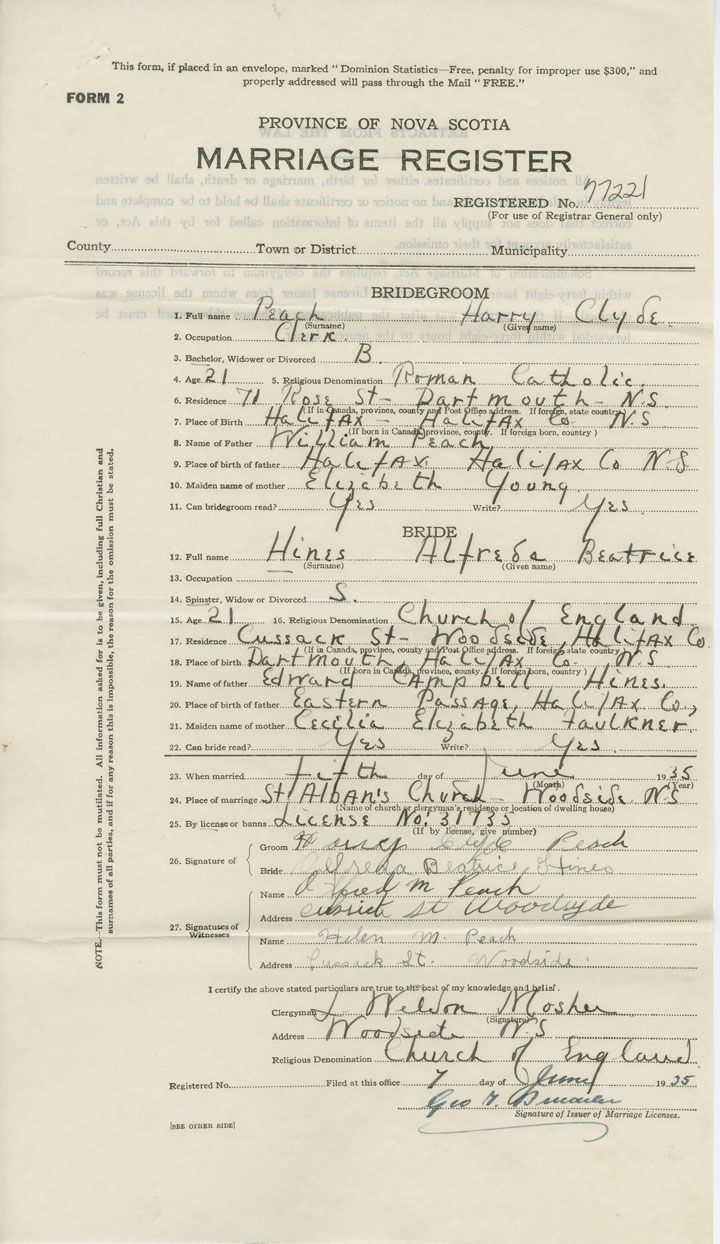 This form, if placed in an envelope, marked "Dominion Statistics—Free, penalty for improper use $300," and
properly addressed will pass through the Mail "FREE."
FORM 2
PROVINCE OF NOVA SCOTIA
MARRIAGE REGISTER
REGISTERED No. 77221
(For use of Registrar General only)
County Town or District Municipality
BRIDEGROOM
1. Full name Peach Harry Clyde
(Surname) (Given name)
2. Occupation Clerk.
3. Bachelor, Widower or Divorced B.
4. Age 21 5. Religious Denomination Roman Catholic.
6. Residence 71 Rose St- Dartmouth- N.S.
(If in Canada, province, county and Post Office address. If foreign, state country)
7. Place of Birth Halifax - Halifax Co. N.S
(If born in Canada, province, county. If foreign born, country)
8. Name of Father William Peach
9. Place of birth of father Halifax Halifax Co N.S
10. Maiden name of mother Elizabeth Young
11. Can bridegroom read? Yes Write? Yes
BRIDE
12. Full name Hines Alfreda Beatrice
(Surname) (Given name)
13. Occupation
14. Spinster, Widow or Divorced S.
15. Age 21 16. Religious Denomination Church of England
17. Residence Cussack St- Woodside, Halifax Co
(If in Canada, province, county and Post Office address. If foreign state country)
18. Place of birth Dartmouth, Halifax Co. N.S
(If born in Canada, province, county. If foreign born, country)
19. Name of father Edward Campbell Hines.
20. Place of birth of father Eastern Passage, Halifax Co,
21. Maiden name of mother Cecilia Elizabeth Faulkner.
22. Can bride read? Yes Write? Yes.
23. When married Fifth day of June 1935
(Month) (Year)
24. Place of marriage St Alban's Church- Woodside NS
(Name of church or clergyman's residence or location of dwelling house)
25. By license or banns License No. 31735
(If by license, give number)
26. Signature of
Groom Harry Clyde Peach
Bride Alfreda Beatrice Hines
27. Signatures of Witnesses
Name M Peach
Address St Woodsyde
Name Helen M. Peach
Address Cussack St. Woodside.
I certify the above stated particulars are true to the best of my knowledge and belief.
Clergyman Weldon Mosher
(Signature)
Address Woodside N.S
Religious Denomination Church of England.
Registered No. Filed at this office 7 day of June 1935
Geo
Signature of Issuer of Marriage Licenses.
[SEE OTHER SIDE]
NOTE.—This form must not be mutilated. All information asked for is to be given, including full Christian and
surnames of all parties, and if for any reason this is impossible, the reason for the omission must be stated.